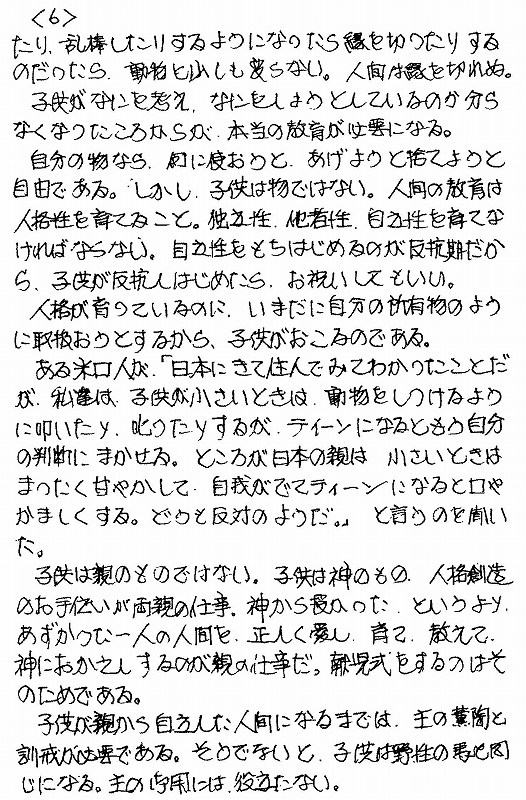 <6>
たり、乱棒したりするようになったら縁を切ったりする
のだったら、動物と少しも変らない。人間は縁を切れぬ。
子供がなにを考え、なにをしようとしているのか分ら
なくなったころからが、本当の教育が必要になる。
自分の物なら、何に使おうと、あげようと捨てようと
自由である。しかし、子供は物ではない。人間の教育は
人格性を育てること。独立性、他者性、自立性を育てな
ければならない。自立性をもちはじめるのが反抗期だか
ら、子供が反抗しはじめたら、お祝いしてもいい。
人格が育っているのに、いまだに自分の所有物のよう
に取扱おうとするから、子供がおこるのである。
ある米口人が、「日本にきて住んでみてわかったことだ
が、私達は、子供が小さいときは、動物をしつけるよう
に叩いたり、叱ったりするが、ティーンになるともう自分
の判断にまかせる。ところが日本の親は 小さいときは
まったく甘やかして、自我がでてティーンになると口や
かましくする。どうも反対のようだ。」 と言うのを聞い
た。
子供は親のものではない。子供は神のもの、人格創造
のお手伝いが両親の仕事。神から授かった、というより、
あずかった一人の人間を、正しく愛し、育て、教えて、
神におかえしするのが親の仕事だ。献児式をするのはそ
のためである。
子供が親から自立した人間になるまでは、主の薫陶と
訓戒が必要である。そうでないと、子供は野性の馬と同
じになる。主の御用には、役立たない。